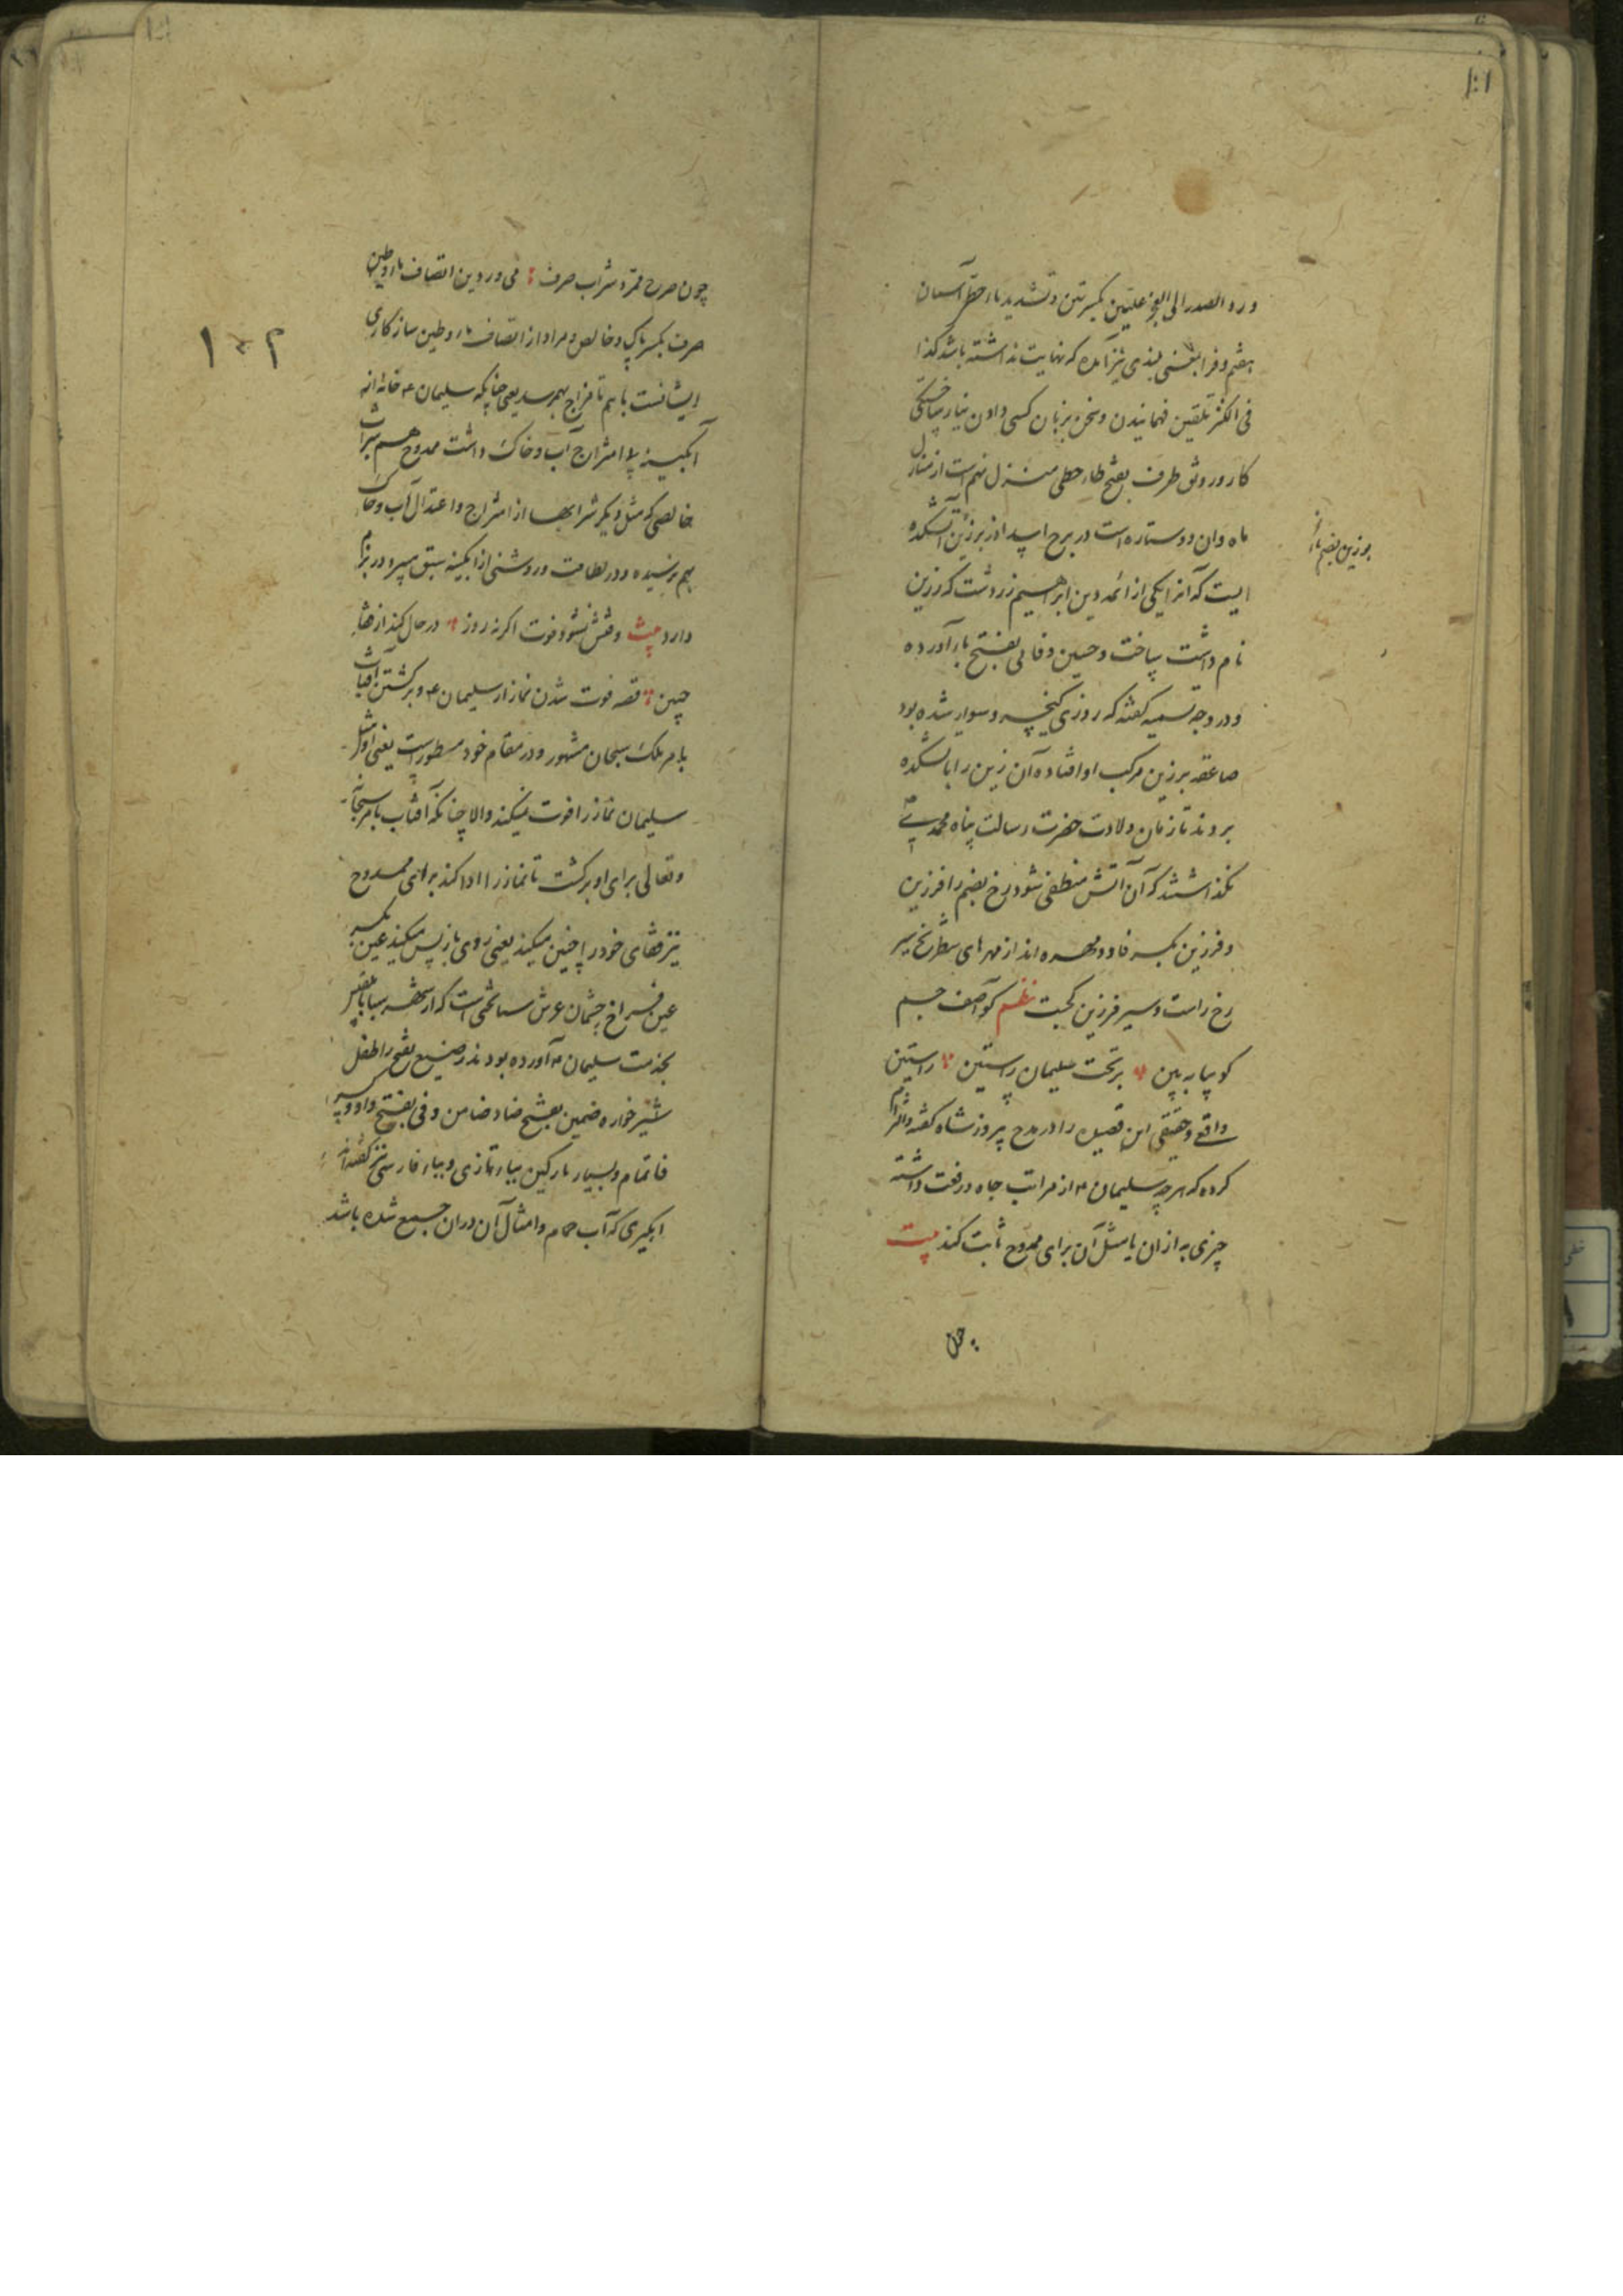 ورد الصدر الی العجز علیین بکسرتین و تشدید یاء حطی آسمان
هفتم و فرا بمعنی بلندی نیز آمده که نهایت نداشته باشد کذا
فی الکنز تلقین فهمانیدن و سخن بزبان کسی دادن نیار ساختگی
کار و رونق طرف بفتح طاء حطی منزل نهم است از منازل
ماه و آن دو ستاره است در برج اسد آذر برزین آتشکده
ایست که آنرا یکی از ائمه دین ابراهیم زردشت که زرین
نام داشت ساخت و حسین وفائی بفتح باء آورده
و در وجه تسمیه گفته که روزی کیخسرو سوار شده بود
صاعقه بر زین مرکب او افتاده آن زین را با تشکده
بردند تا زمان ولادت حضرت رسالت پناه محمدی
نگذاشتند که آن آتش منطفی شود رخ بضم را فرزین
و فرزین بکسر فا دو مهره اند از مهرهای شطرنج سیر
رخ راست و سیر فرزین کجست نظم کو آصف جم
کو بیا به بین بر تخت سلیمان راستین راستین
واقعی و حقیقی این قصیده را در مدح پیروزشاه گفته و التزام
کرده که هرچه سلیمان از مراتب جاه و رفعت داشته
چیزی به از آن یا مثل آن برای ممدوح ثابت کند بیت
چون
برزین بضم باء
چون صرح ممرد شراب صرف می در وی دین اتصاف ماء و طین
صرف بکسر پاک و خالص و مراد از اتصاف ماء و طین سازگاری
ایشانست باهم تا مزاج بهم رسد یعنی چنانکه سلیمان خانه از
آبگینه بلا امتزاج آب و خاک داشت ممدوح هم شراب
خالصی که مثل دیگر شرابها از امتزاج و اعتدال آب و خاک
بهم نرسیده و در لطافت و روشنی از آبگینه سبق میبرد در بزم
دارد بیت وقتش نشود فوت اگر نه روز در حال کند از قفا
جبین قصه فوت شدن نماز از سلیمان و برگشتن آفتاب
بامر ملک سبحان مشهور و در مقام خود مسطور است یعنی او مثل
سلیمان نماز را فوت نمیکند والا چنانکه آفتاب بامر سبحانه
و تعالی برای او برگشت تا نماز را ادا کند برای ممدوح
نیز قفای خود را جبین میکند یعنی روی باز پس میکند عین بکسر
عین فراخ چشمان عرش تختی است که از شهر سبا بلقیس
بخدمت سلیمان آورده بودند رضیع بفتح را طفل
شیر خواره ضمین بفتح ضاد ضامن وفی بفتح واو و کسر
فا تمام و بسیار پارگین بباء تازی و بباء فارسی نیز گفته اند
آبگیری که آب حمام و امثال آن در آن جمع شده باشد
۱۰۲